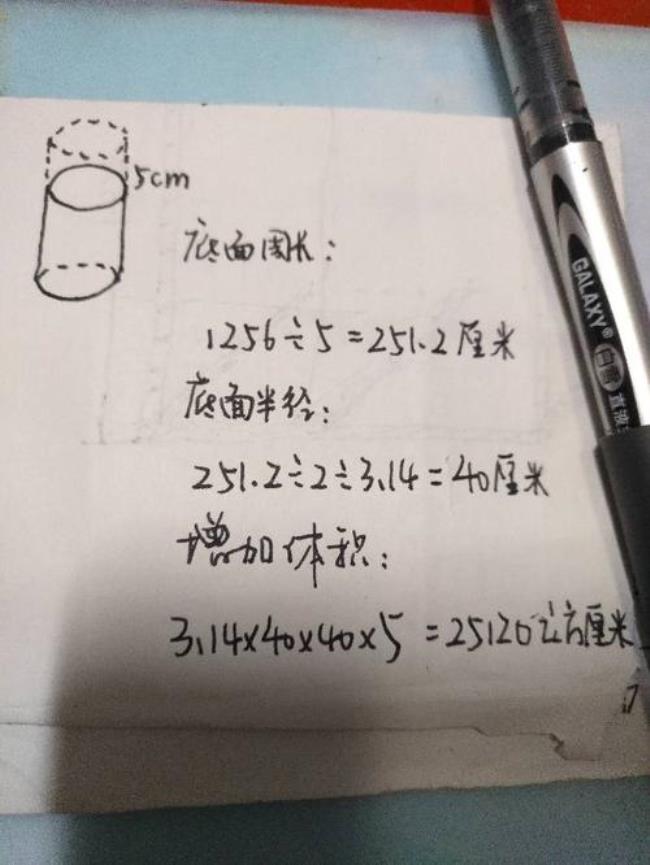 5cm
底面周长:
1256÷5=251.2厘米
底面半径:
251.2÷2÷3.14=40厘米
增加体积:
3.14×40×40×5=25120立方厘米
GALAXY®
白雪
直液